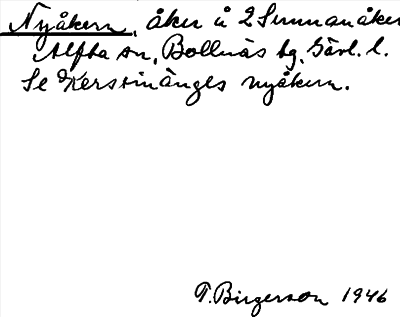 Nyåkern, åker å 2 Sunnanåker
Alfta sn, Bollnäs tg, Gävl. l.
Se Kerstinänges nyåkern.
T. Birgerson 1946